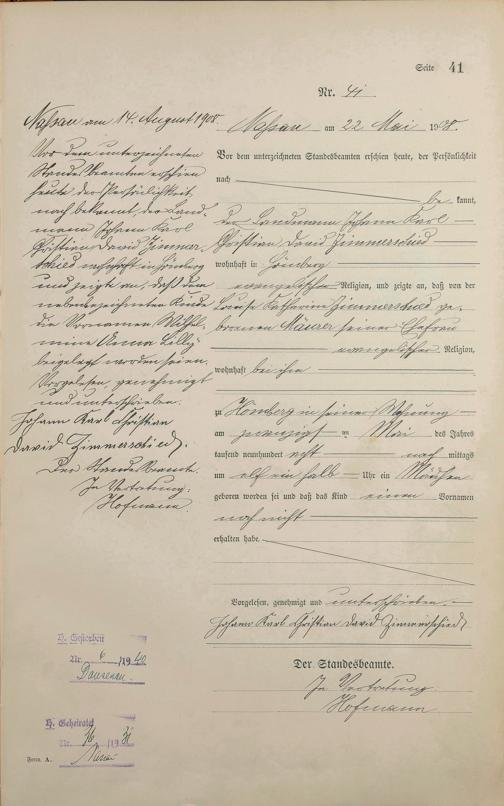 Seite 41
Nr. 41
Nassau am 14. August 1908.
Vor dem unterzeichneten
Standesbeamten erschien
heute, der Persönlichkeit
nach bekannt, der Land-
mann Johann Karl
Christian David Zimmer-
schied wohnhaft in Hömberg
und zeigte an, daß dem
nebenbezeichneten Kinde
die Vornamen Wilhel-
mine Anna Lilly
beigelegt worden seien.
Vorgelesen, genehmigt
und unterschrieben.
Johann Karl Christian
David Zimmerschied.
Der Standesbeamte.
In Vertretung:
Hofmann
Nassau am 22 Mai 1908.
Vor dem unterzeichneten Standesbeamten erschien heute, der Persönlichkeit
nach
be kannt,
der Landmann Johann Karl
Christian David Zimmerschied
wohnhaft in Hömberg
evangelischer Religion, und zeigte an, daß von der
Louise Katharine Zimmerschied ge-
borenen Mäurer seiner Ehefrau
evangelischer Religion,
wohnhaft bei ihm
zu Hömberg in seiner Wohnung
am zwanzigsten Mai des Jahres
tausend neunhundert acht nach mittags
um elf ein halb Uhr ein Mädchen
geboren worden sei und daß das Kind einen Vornamen
noch nicht
erhalten habe.
Vorgelesen, genehmigt und unterschrieben.
Johann Karl Christian David Zimmerschied
Der Standesbeamte.
In Vertretung:
Hofmann
Nr. 6 /1940
Dausenau.
Nr. /1931
Form. A.